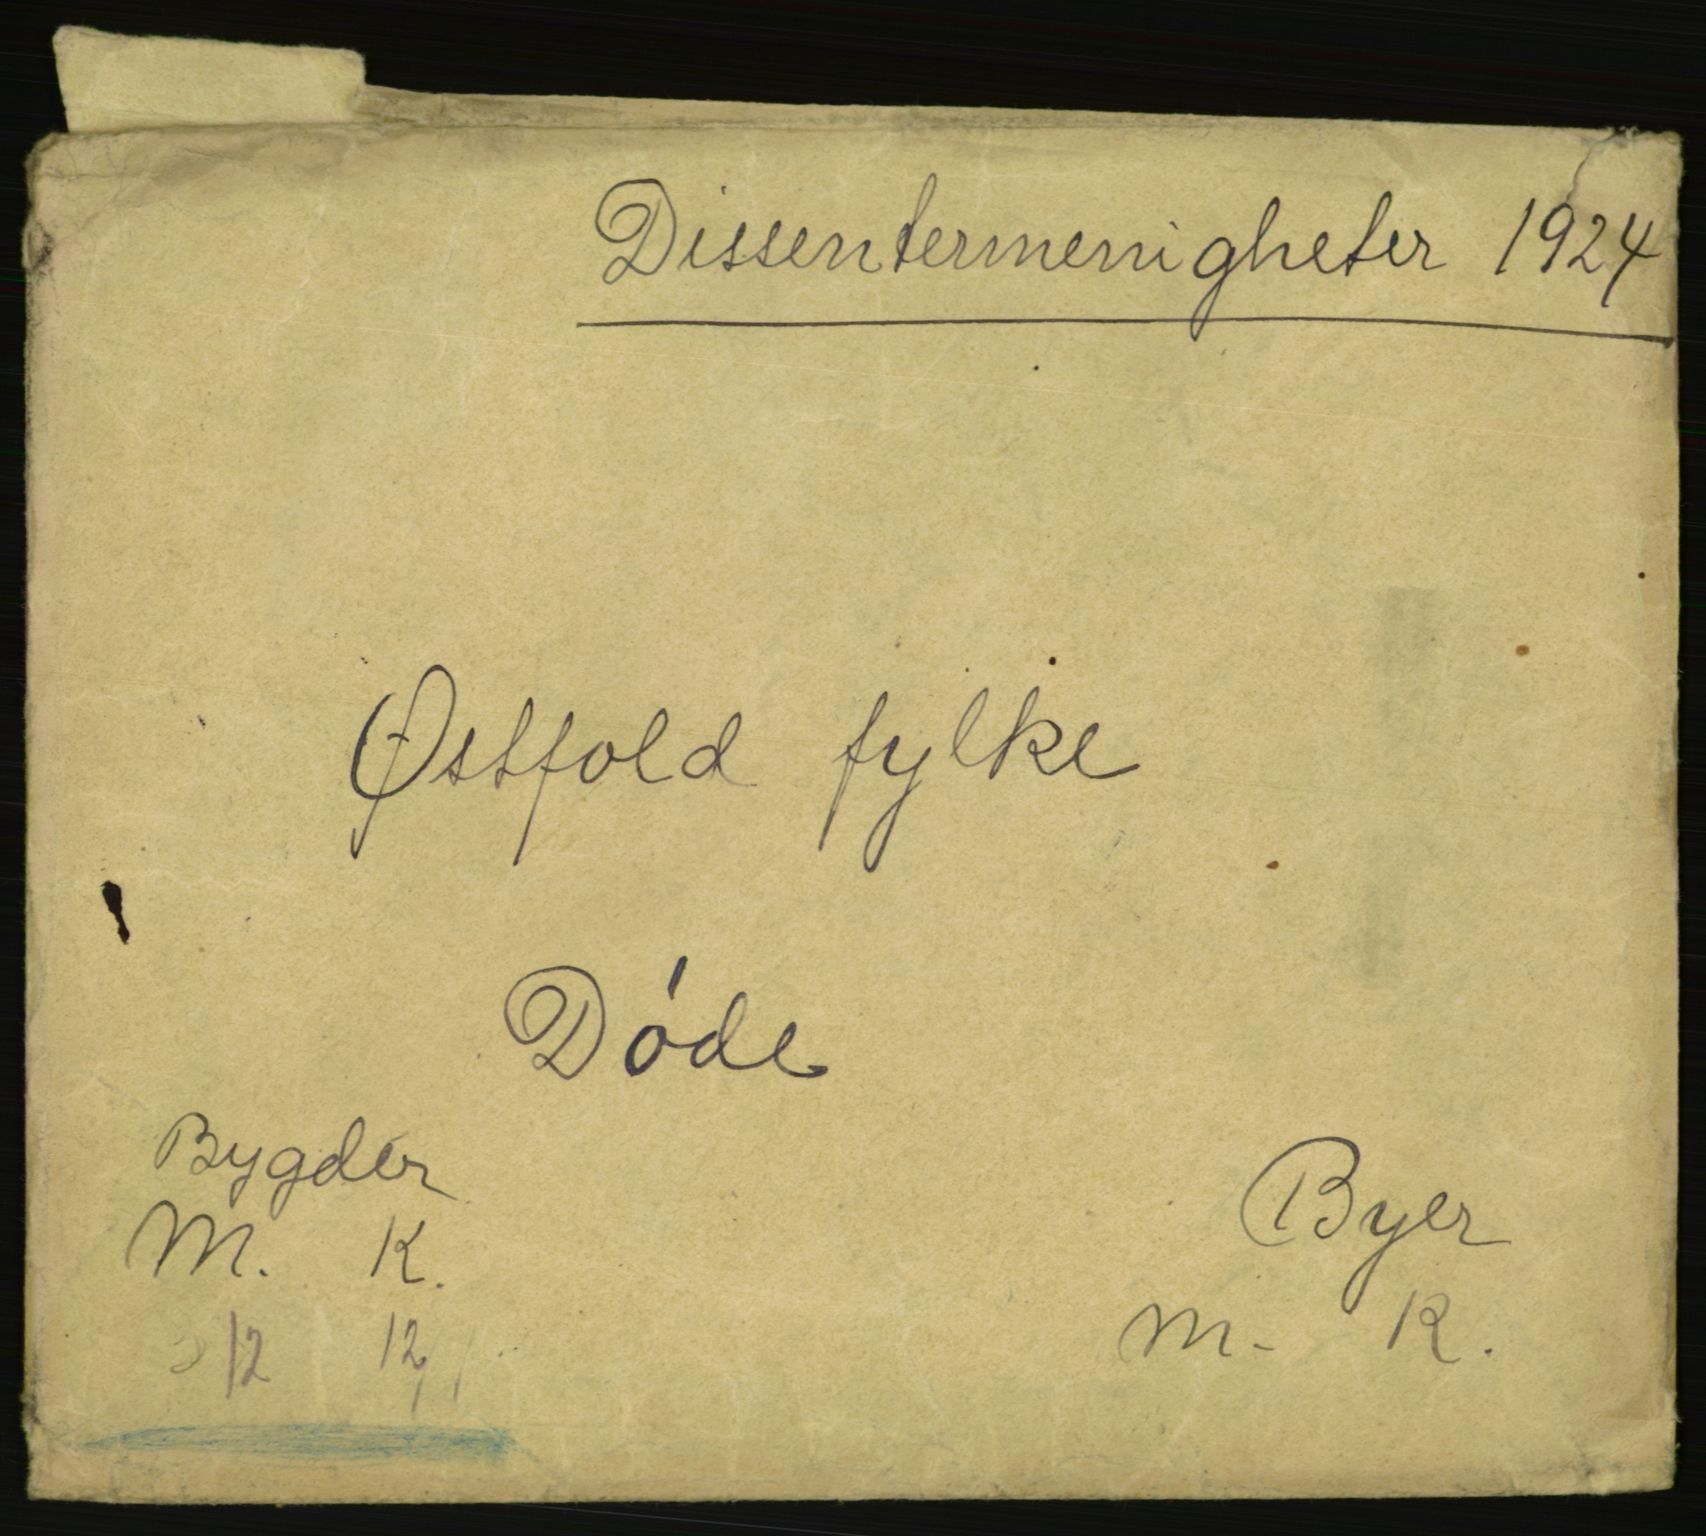 Dissentermenigheter 1924
Østfold fylke
Døde
Bygder
M. K.
12 12
Byer
M. K.